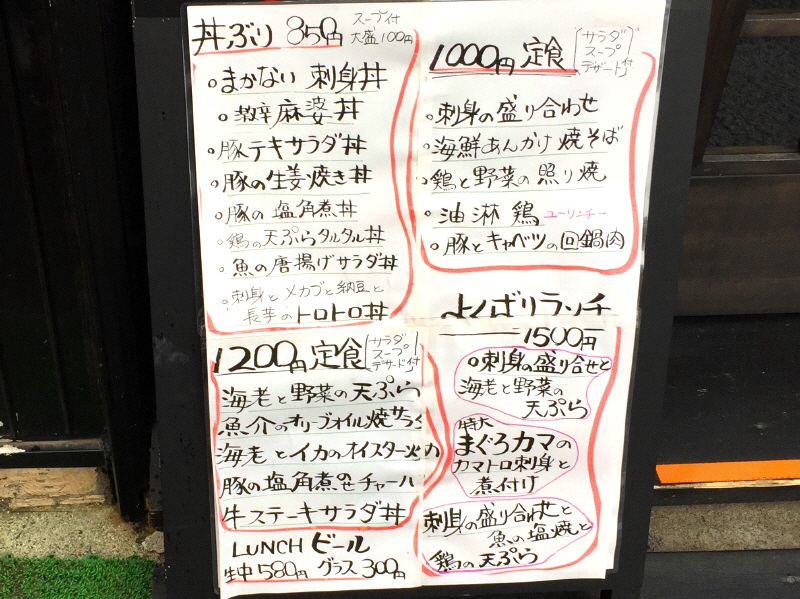 丼ぶり 850円 スープ付
大盛100円
・まかない 刺身丼
・麻婆丼
・豚テキサラダ丼
・豚の生姜焼き丼
・豚の塩角煮丼
・鶏の天ぷらタルタル丼
・魚の唐揚げサラダ丼
・刺身とメカブと納豆と
長芋のトロトロ丼
1000円 定食
サラダ
スープ
デザート付
・刺身の盛り合わせ
・海鮮あんかけ焼そば
・鶏と野菜の照り焼
・油淋鶏 ユーリンチー
・豚とキャベツの回鍋肉
1200円 定食
サラダ
スープ
デザート付
海老と野菜の天ぷら
魚介のオリーブオイル焼サラ
海老とイカのオイスター炒め
豚の塩角煮のせチャーハ
牛ステーキサラダ丼
LUNCH ビール
生中580円 グラス300円
よくばりランチ
1500円
・刺身の盛り合せと
海老と野菜の
天ぷら
特大
まぐろカマの
カマトロ刺身と
煮付け
刺身の盛り合わせと
魚の塩焼と
鶏の天ぷら